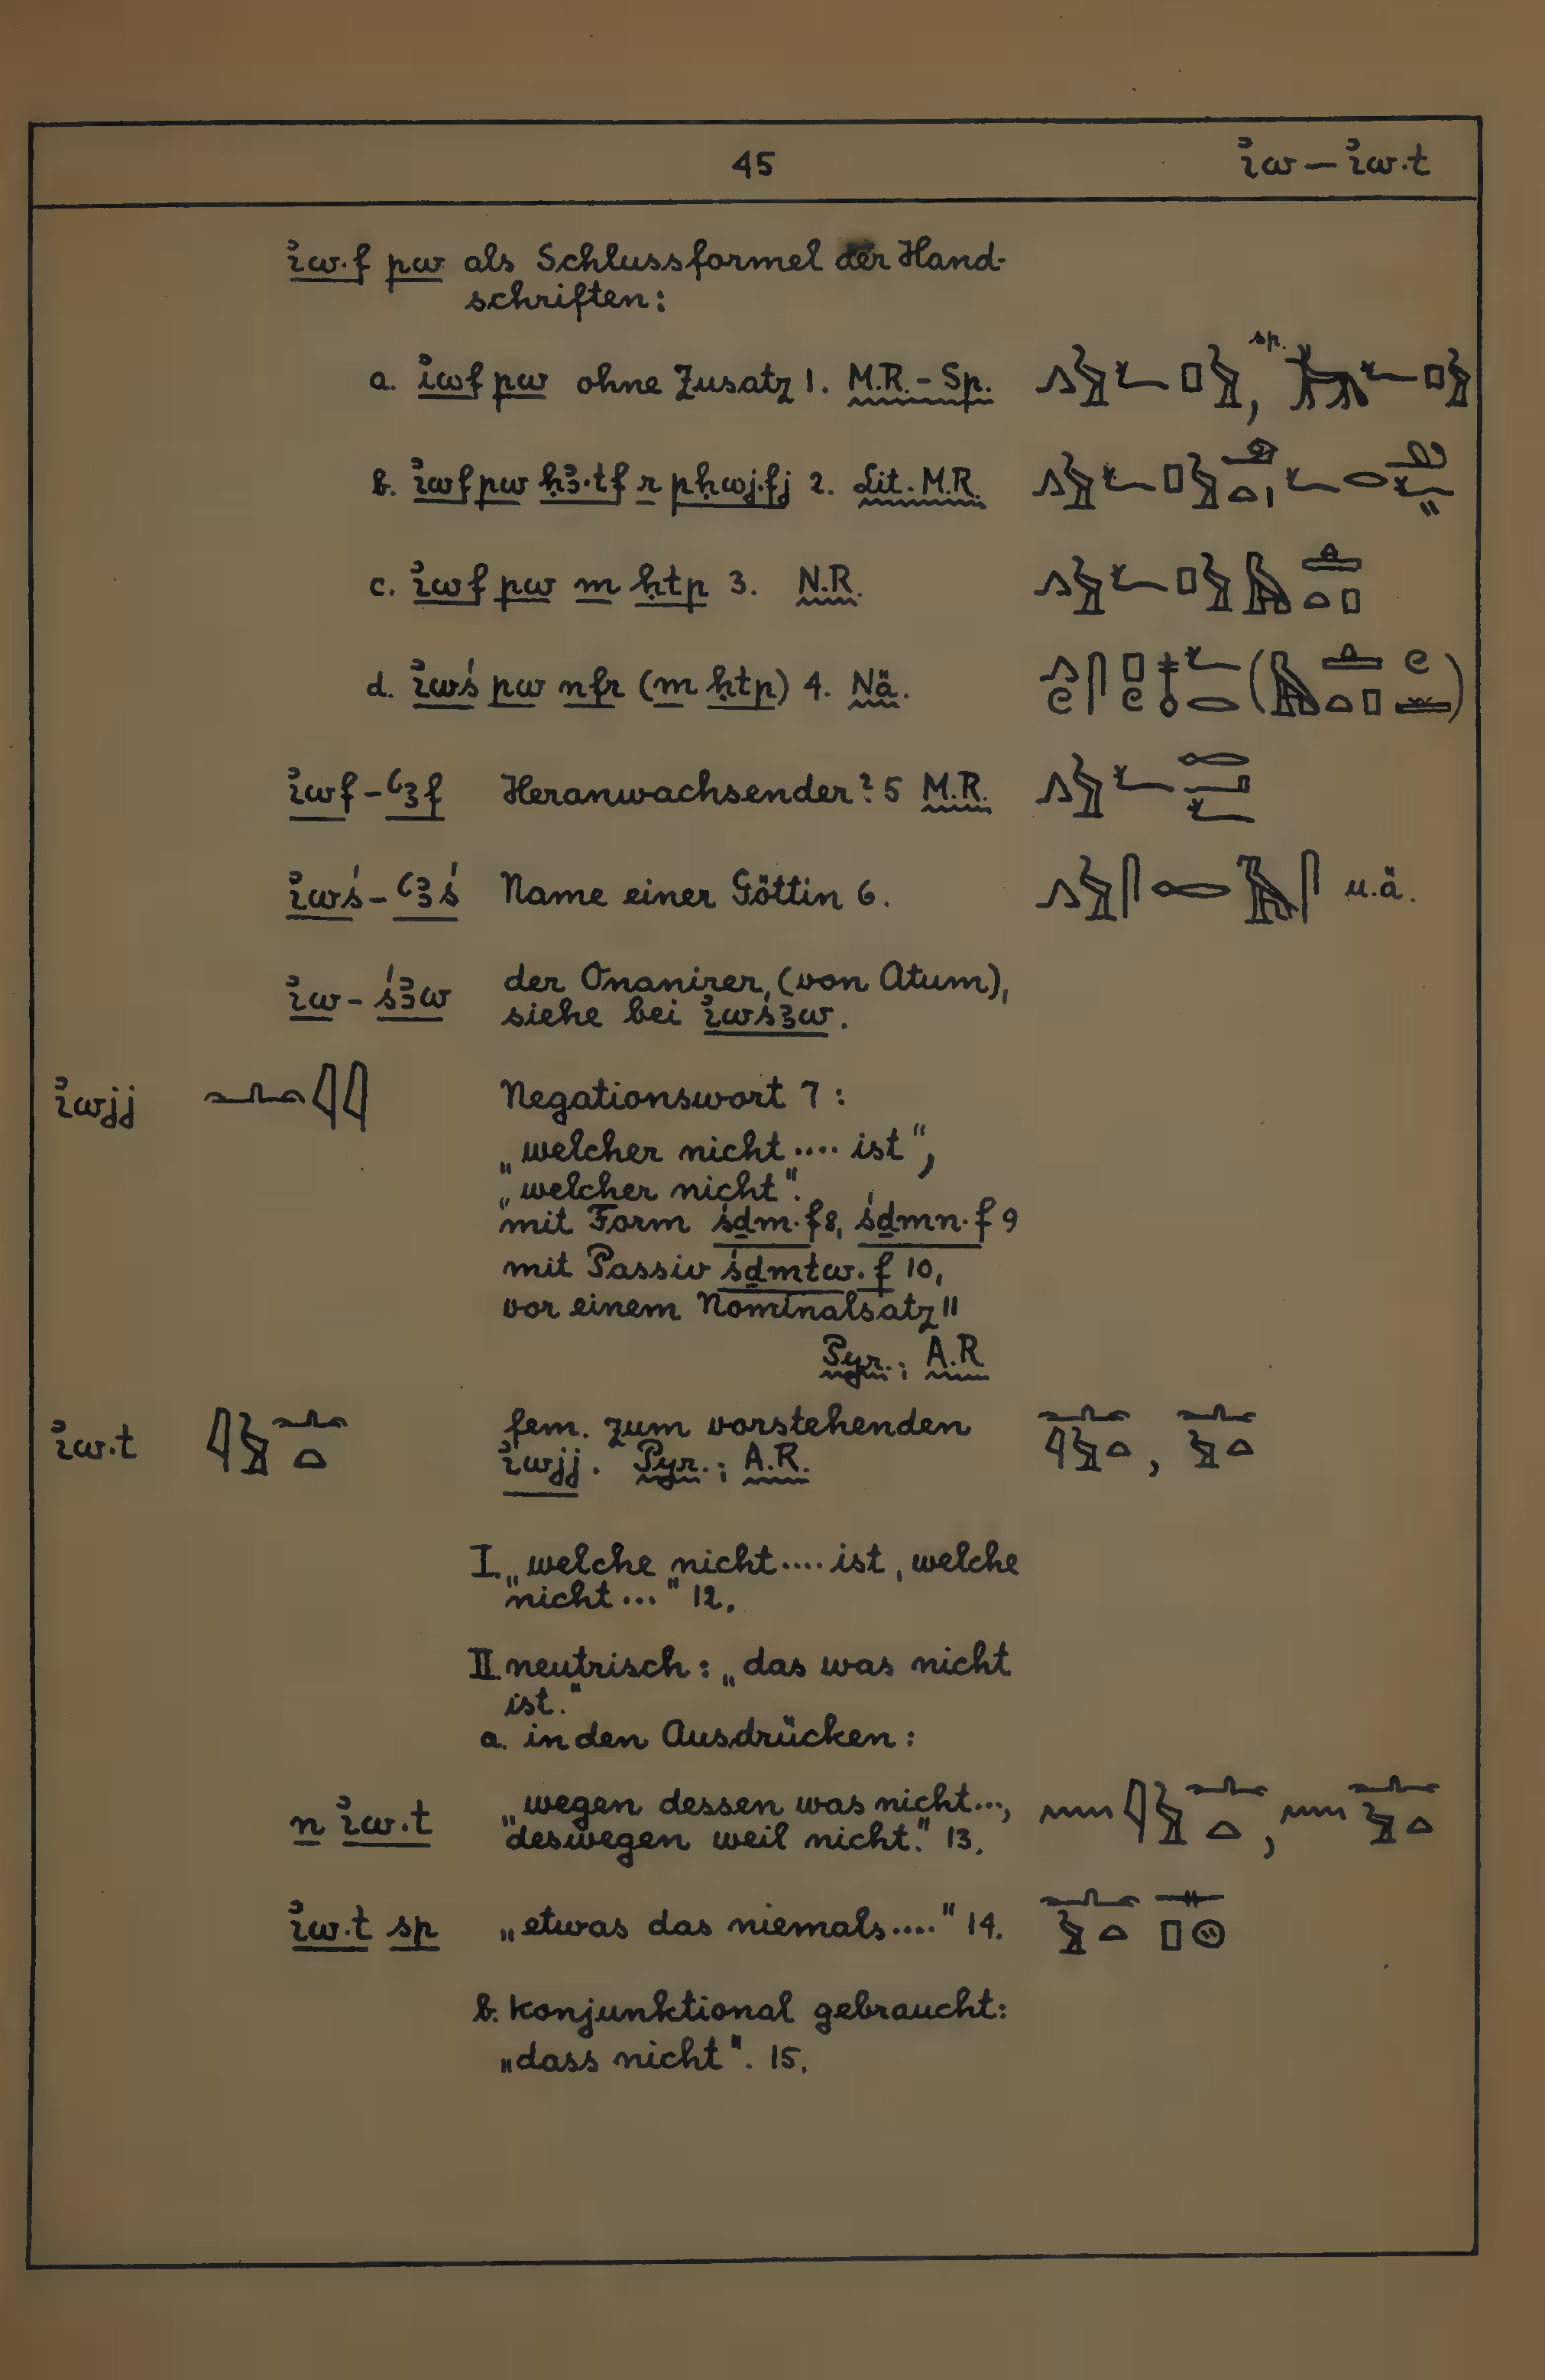 45
ꞽw – ꞽw.t
ꞽw.f pw als Schlussformel der Hand-
schriften:
a. ꞽwf pw ohne Zusatz 1. M.R. - Sp. 𓂻𓅱𓆑𓊪𓅱, sp. 𓃛𓆑𓊪𓅱
b. ꞽwf pw ḥꜣ.tf r pḥwj.fj 2. Lit. M.R.
c. ꞽwf pw m ḥtp 3. N.R.
d. ꞽwś pw nfr (m ḥtp) 4. Nä.
ꞽwf-ꜥꜣf Heranwachsender? 5 M.R.
ꞽwś-ꜥꜣś Name einer Göttin 6. u.ä.
ꞽw-śꜣw der Onanirer, (von Atum),
siehe bei ꞽwśꜣw.
ꞽwjj 𓂜𓇋𓇋 Negationswort 7:
„welcher nicht .... ist",
„welcher nicht".
mit Form śḏm.f 8, śḏmn.f 9
mit Passiv śḏmtw.f 10,
vor einem Nominalsatz 11
Pyr.; A.R
ꞽw.t 𓇋𓅱𓂜𓏏 fem. zum vorstehenden 𓂜𓇋𓅱𓏏, 𓂜𓅱𓏏
ꞽwjj. Pyr.; A.R.
I. „welche nicht .... ist, welche
nicht ..." 12.
II. neutrisch: „das was nicht
ist."
a. in den Ausdrücken:
n ꞽw.t „wegen dessen was nicht ..., 𓈖𓇋𓅱𓂜𓏏, 𓈖𓂜𓅱𓏏
deswegen weil nicht." 13.
ꞽw.t sp „etwas das niemals ...." 14. 𓂜𓅱𓏏𓊃𓊪𓊗
b. konjunktional gebraucht:
„dass nicht". 15.